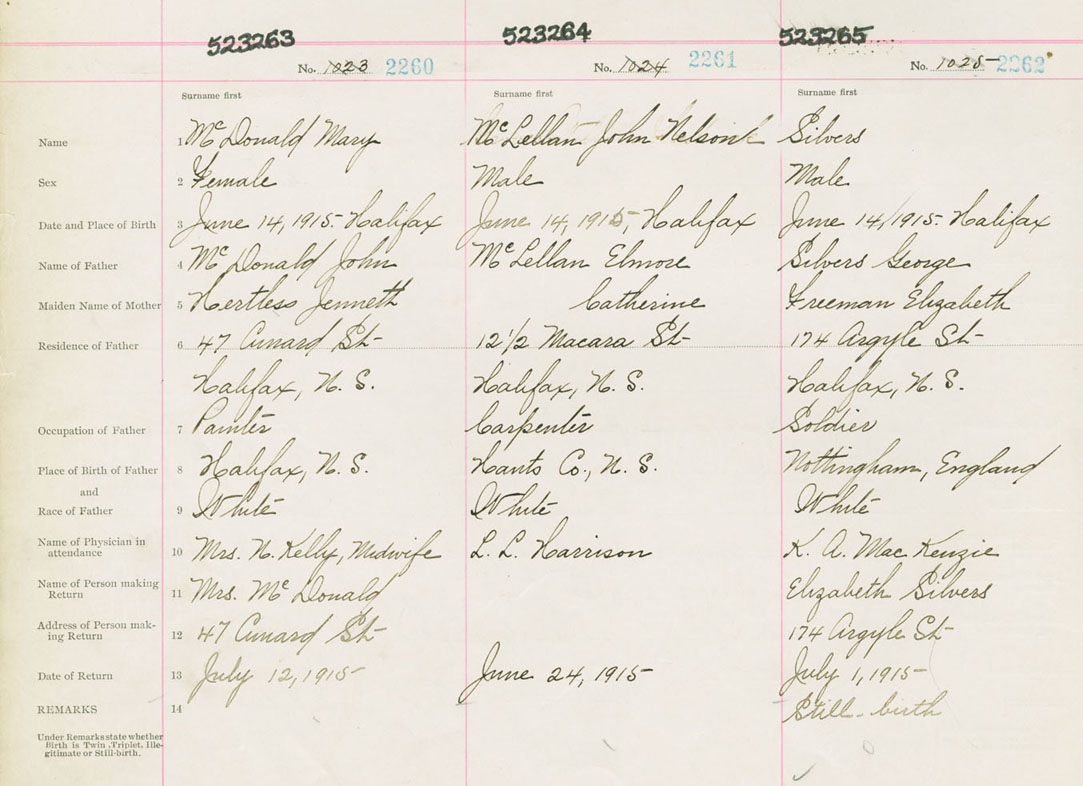 523263 523264 523265
No. 1023 2260 No. 1024 2261 No. 1025 2262
Surname first Surname first Surname first
Name 1 McDonald Mary McLellan John Nelson Silvers
Sex 2 Female Male Male
Date and Place of Birth 3 June 14, 1915 Halifax June 14, 1915, Halifax June 14/1915 Halifax
Name of Father 4 McDonald John McLellan Elmore Silvers George
Maiden Name of Mother 5 Hertless Jenneth Catherine Freeman Elizabeth
Residence of Father 6 47 Cunard St 12 1/2 Macara St 174 Argyle St
Halifax, N. S. Halifax, N. S. Halifax, N. S.
Occupation of Father 7 Painter Carpenter Soldier
Place of Birth of Father 8 Halifax, N. S. Hants Co., N. S. Nottingham, England
and
Race of Father 9 White White White
Name of Physician in
attendance 10 Mrs. N. Kelly, Midwife L. L. Harrison K. A. MacKenzie
Name of Person making
Return 11 Mrs. McDonald Elizabeth Silvers
Address of Person mak-
ing Return 12 47 Cunard St 174 Argyle St
Date of Return 13 July 12, 1915 June 24, 1915 July 1, 1915
REMARKS 14 Still-birth
Under Remarks state whether
Birth is Twin, Triplet, Ille-
gitimate or Still-birth.